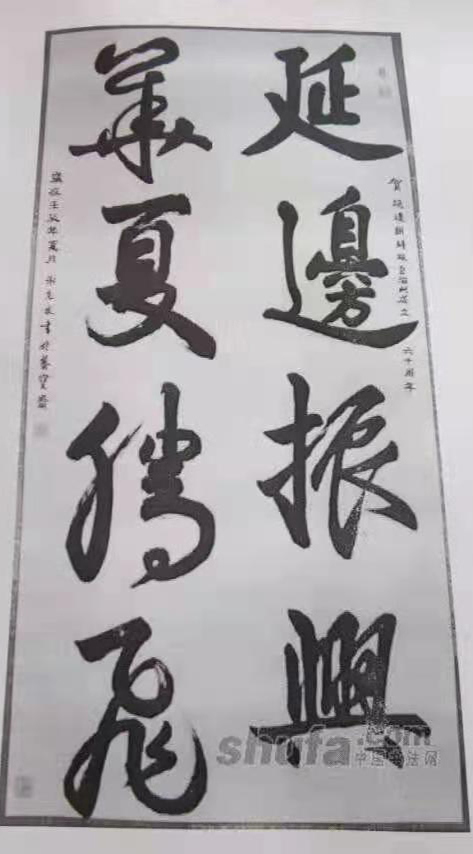 延邊振興
華夏騰飛
賀延邊朝鮮族自治州成立六十周年
歲次壬辰年夏月
書於
shufa.com
中国书法网